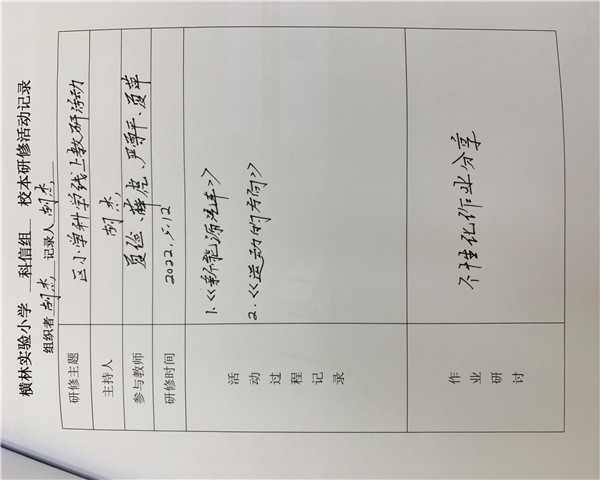 横林实验小学 科信组 校本研修活动记录
组织者 胡杰 记录人 胡杰
研修主题 区小学科学线上教研活动
主持人 胡杰
参与教师 夏俭、薛虎、严雪平、夏萍
研修时间 2022.5.12
活动过程记录
1.《新能源汽车》
2.《运动的方向》
作业研讨
个性化作业分享